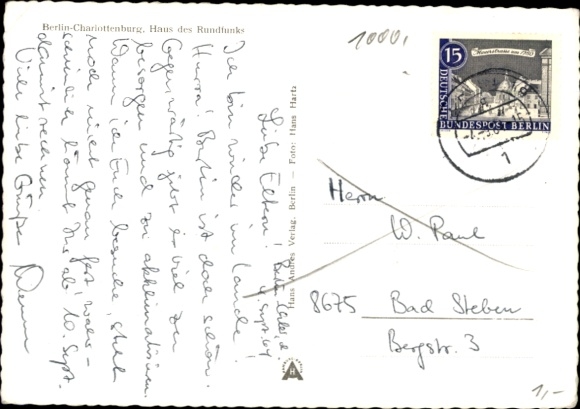 Berlin-Charlottenburg, Haus des Rundfunks
Liebe Eltern!
4. Sept. 64
Ich bin wieder im Lande!
Hurra! Berlin ist doch schön.
Gegenwärtig gibt es viel zu
besorgen und zu akklimatisieren.
Wann ich Euch besuche, steht
noch nicht genau fest, wahr-
scheinlich könnt Ihr ab 10. Sept.
damit rechnen.
Viele liebe Grüße
Hans Andres Verlag, Berlin — Foto: Hans Hartz
1000,
15
DEUTSCHE
BUNDESPOST BERLIN
1
Herrn
W. Paul
8675 Bad Steben
Bergstr. 3
H
1,-